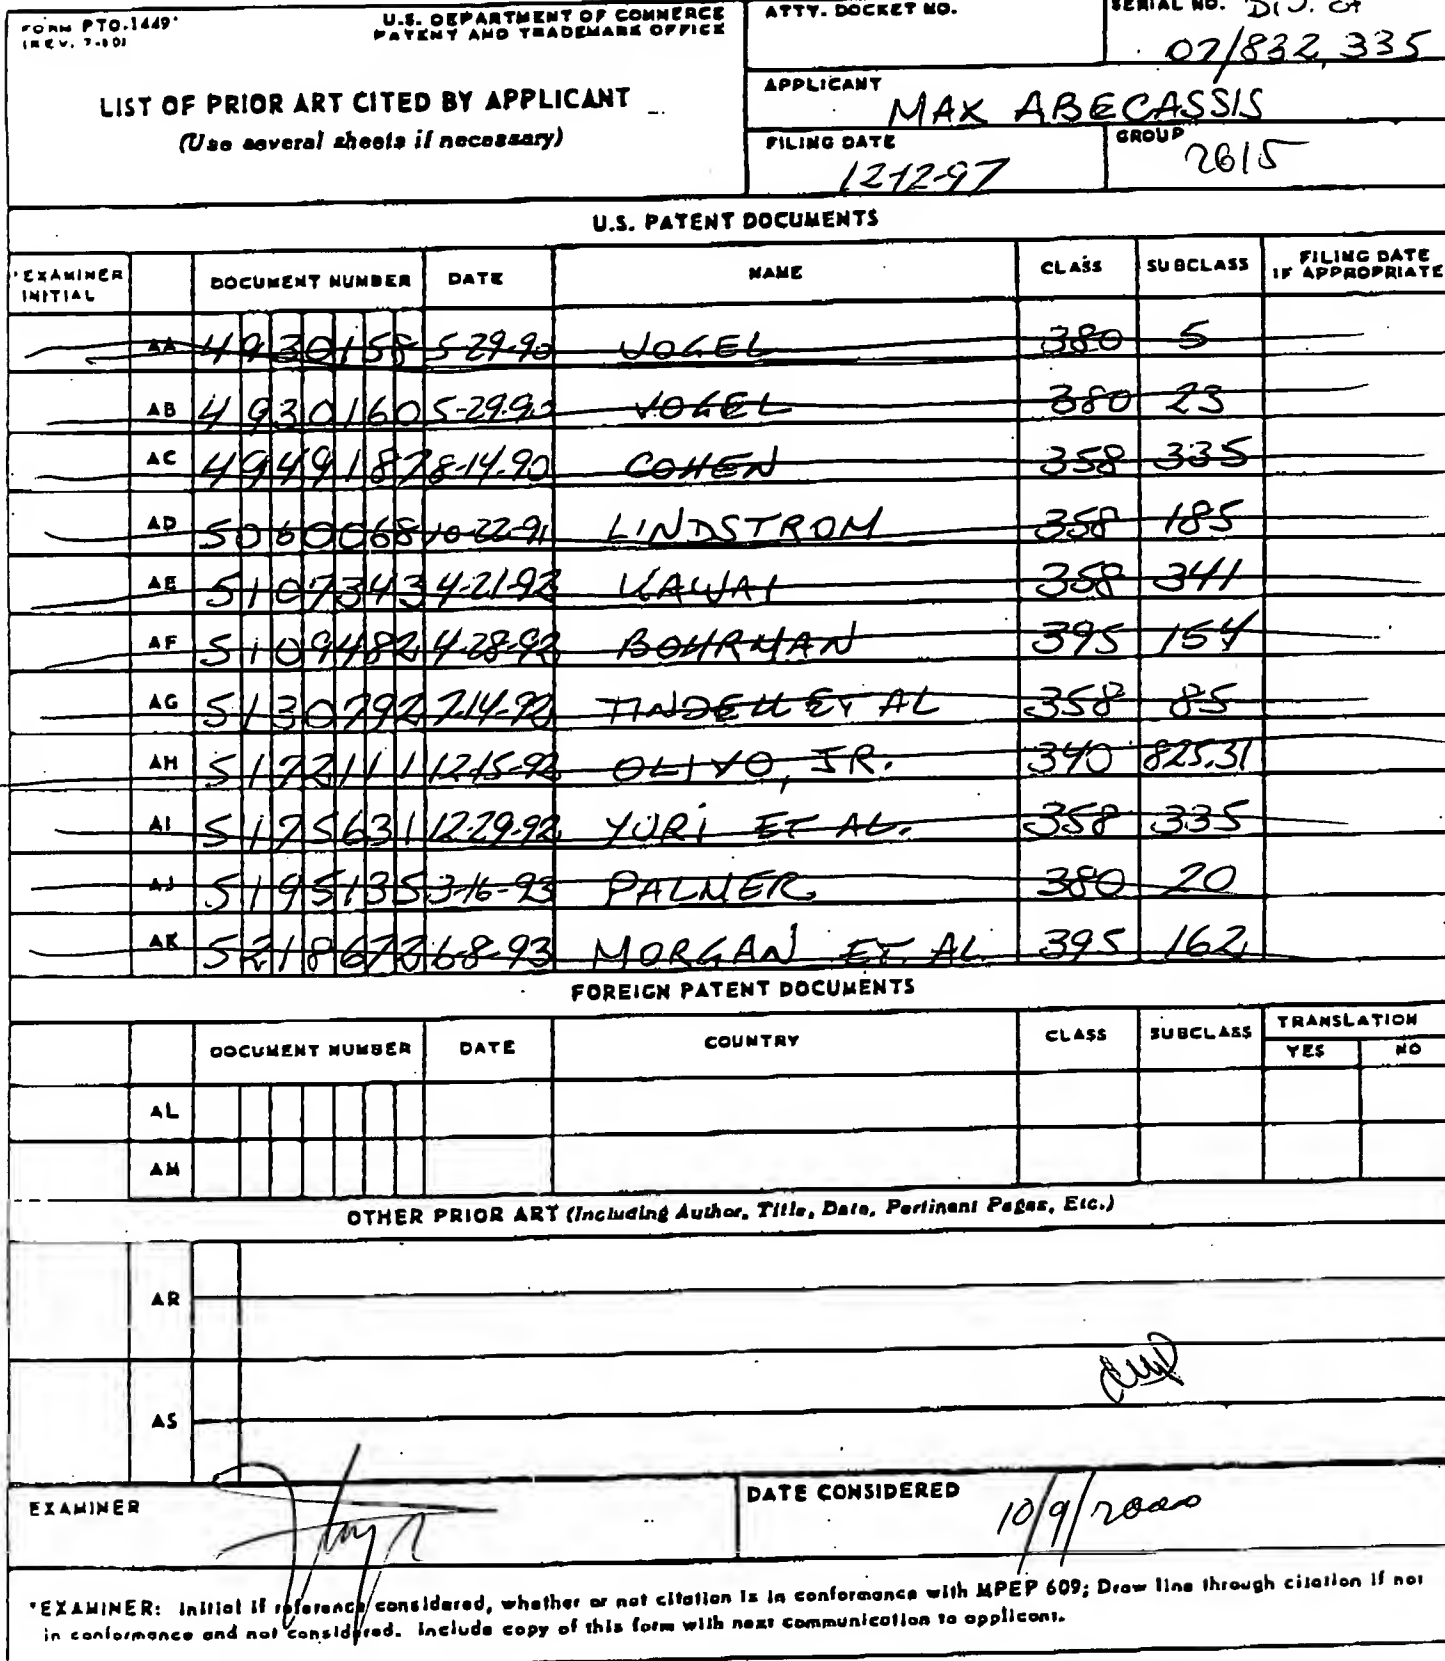 FORM PTO-1449
(REV. 7-80)
U.S. DEPARTMENT OF COMMERCE
PATENT AND TRADEMARK OFFICE
ATTY. DOCKET NO.
SERIAL NO. DIV. OF
07/832,335
LIST OF PRIOR ART CITED BY APPLICANT
(Use several sheets if necessary)
APPLICANT
MAX ABECASSIS
FILING DATE
12-12-97
GROUP
2615
U.S. PATENT DOCUMENTS
*EXAMINER INITIAL DOCUMENT NUMBER DATE NAME CLASS SUBCLASS FILING DATE IF APPROPRIATE
AA 4930158 5-29-90 VOGEL 380 5
AB 4930160 5-29-90 VOGEL 380 23
AC 4949187 8-14-90 COHEN 358 335
AD 5060068 10-22-91 LINDSTROM 358 185
AE 5107343 4-21-92 KAWAI 358 341
AF 5109482 4-28-92 BOHRMAN 395 154
AG 5130792 7-14-92 TINDELL ET AL 358 85
AH 5172111 12-15-92 OLIVO, JR. 340 825.31
AI 5175631 12-29-92 YURI ET AL. 358 335
AJ 5195135 3-16-93 PALMER 380 20
AK 5218672 6-8-93 MORGAN ET. AL 395 162
FOREIGN PATENT DOCUMENTS
DOCUMENT NUMBER DATE COUNTRY CLASS SUBCLASS TRANSLATION
YES NO
AL
AM
OTHER PRIOR ART (Including Author, Title, Date, Pertinent Pages, Etc.)
AR
AS
EXAMINER
DATE CONSIDERED 10/9/2000
*EXAMINER: Initial if reference considered, whether or not citation is in conformance with MPEP 609; Draw line through citation if not
in conformance and not considered. Include copy of this form with next communication to applicant.